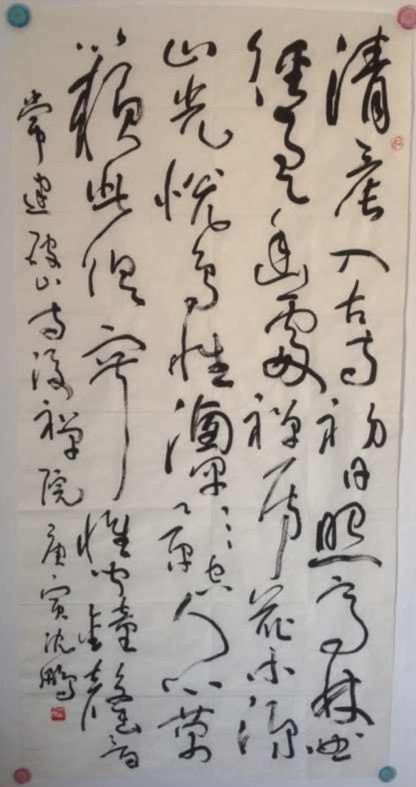 清晨入古寺初日照高林曲
徑通幽處禅房花木深
山光悦鳥性潭影空人心萬
籁此俱寂惟闻鐘磬音
常建破山寺後禅院庚寅沈鹏